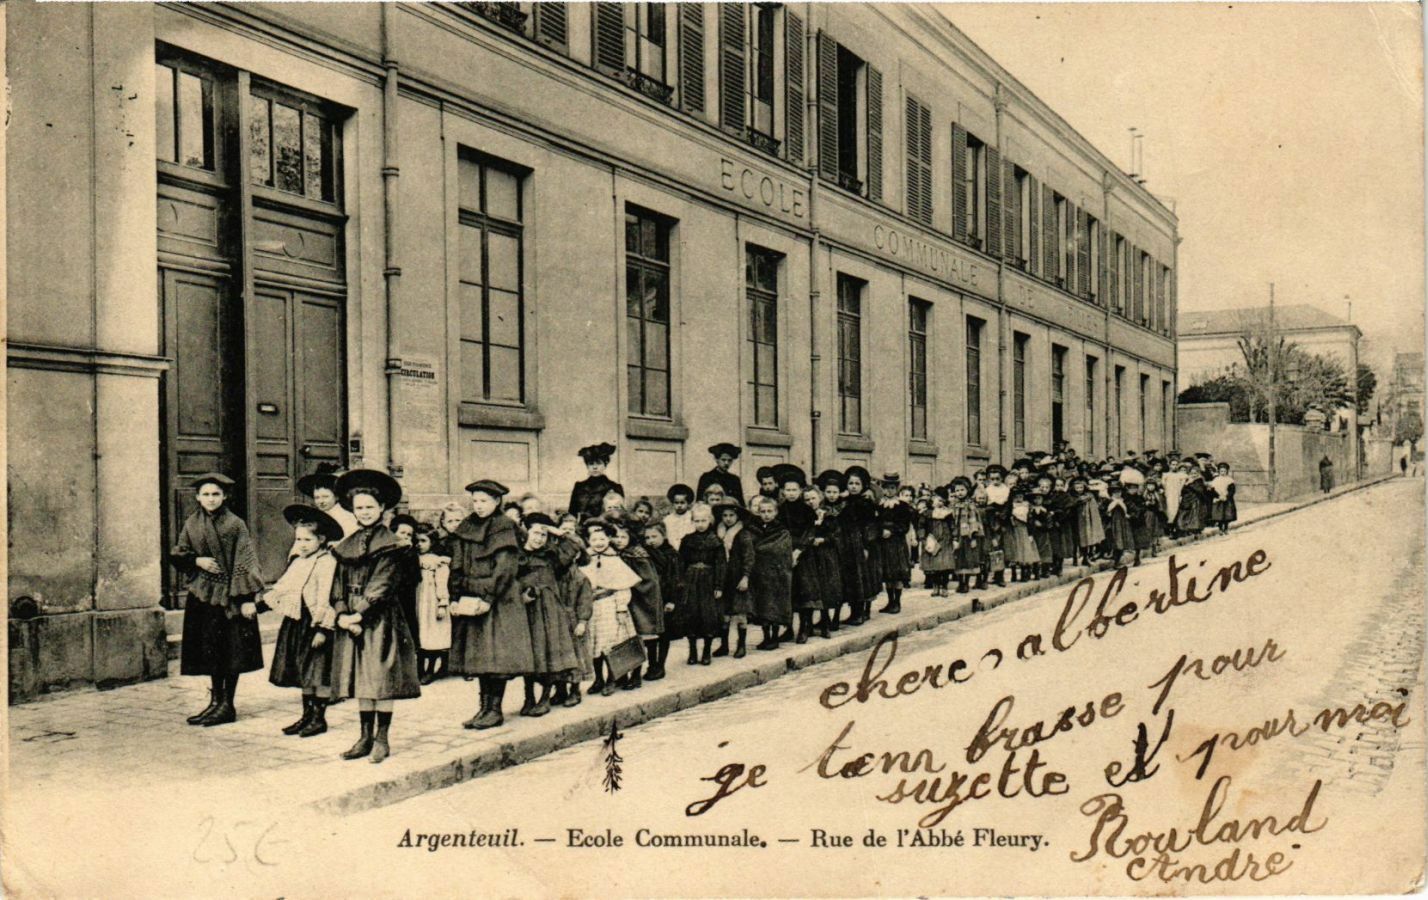 ECOLE COMMUNALE DE FILLES
CIRCULATION
chere albertine
je tæmbrasse pour
suzette et pour moi
Rouland
André
Argenteuil. — Ecole Communale. — Rue de l'Abbé Fleury.
25€